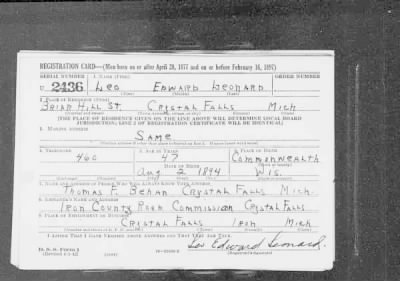 REGISTRATION CARD—(Men born on or after April 28, 1877 and on or before February 16, 1897)
SERIAL NUMBER 1. NAME (Print) ORDER NUMBER
U 2436 Leo Edward Leonard
2. PLACE OF RESIDENCE (Print)
Briar Hill St. Crystal Falls Mich
[THE PLACE OF RESIDENCE GIVEN ON THE LINE ABOVE WILL DETERMINE LOCAL BOARD
JURISDICTION; LINE 2 OF REGISTRATION CERTIFICATE WILL BE IDENTICAL]
3. MAILING ADDRESS
Same
4. TELEPHONE 5. AGE IN YEARS 6. PLACE OF BIRTH
460 47 Commonwealth
DATE OF BIRTH
Aug 2 1894 Wis.
7. NAME AND ADDRESS OF PERSON WHO WILL ALWAYS KNOW YOUR ADDRESS
Thomas F. Behan Crystal Falls Mich.
8. EMPLOYER'S NAME AND ADDRESS
Iron County Road Commission Crystal Falls
9. PLACE OF EMPLOYMENT OR BUSINESS
Crystal Falls Iron Mich
I AFFIRM THAT I HAVE VERIFIED ABOVE ANSWERS AND THAT THEY ARE TRUE.
D. S. S. Form 1 Leo Edward Leonard.